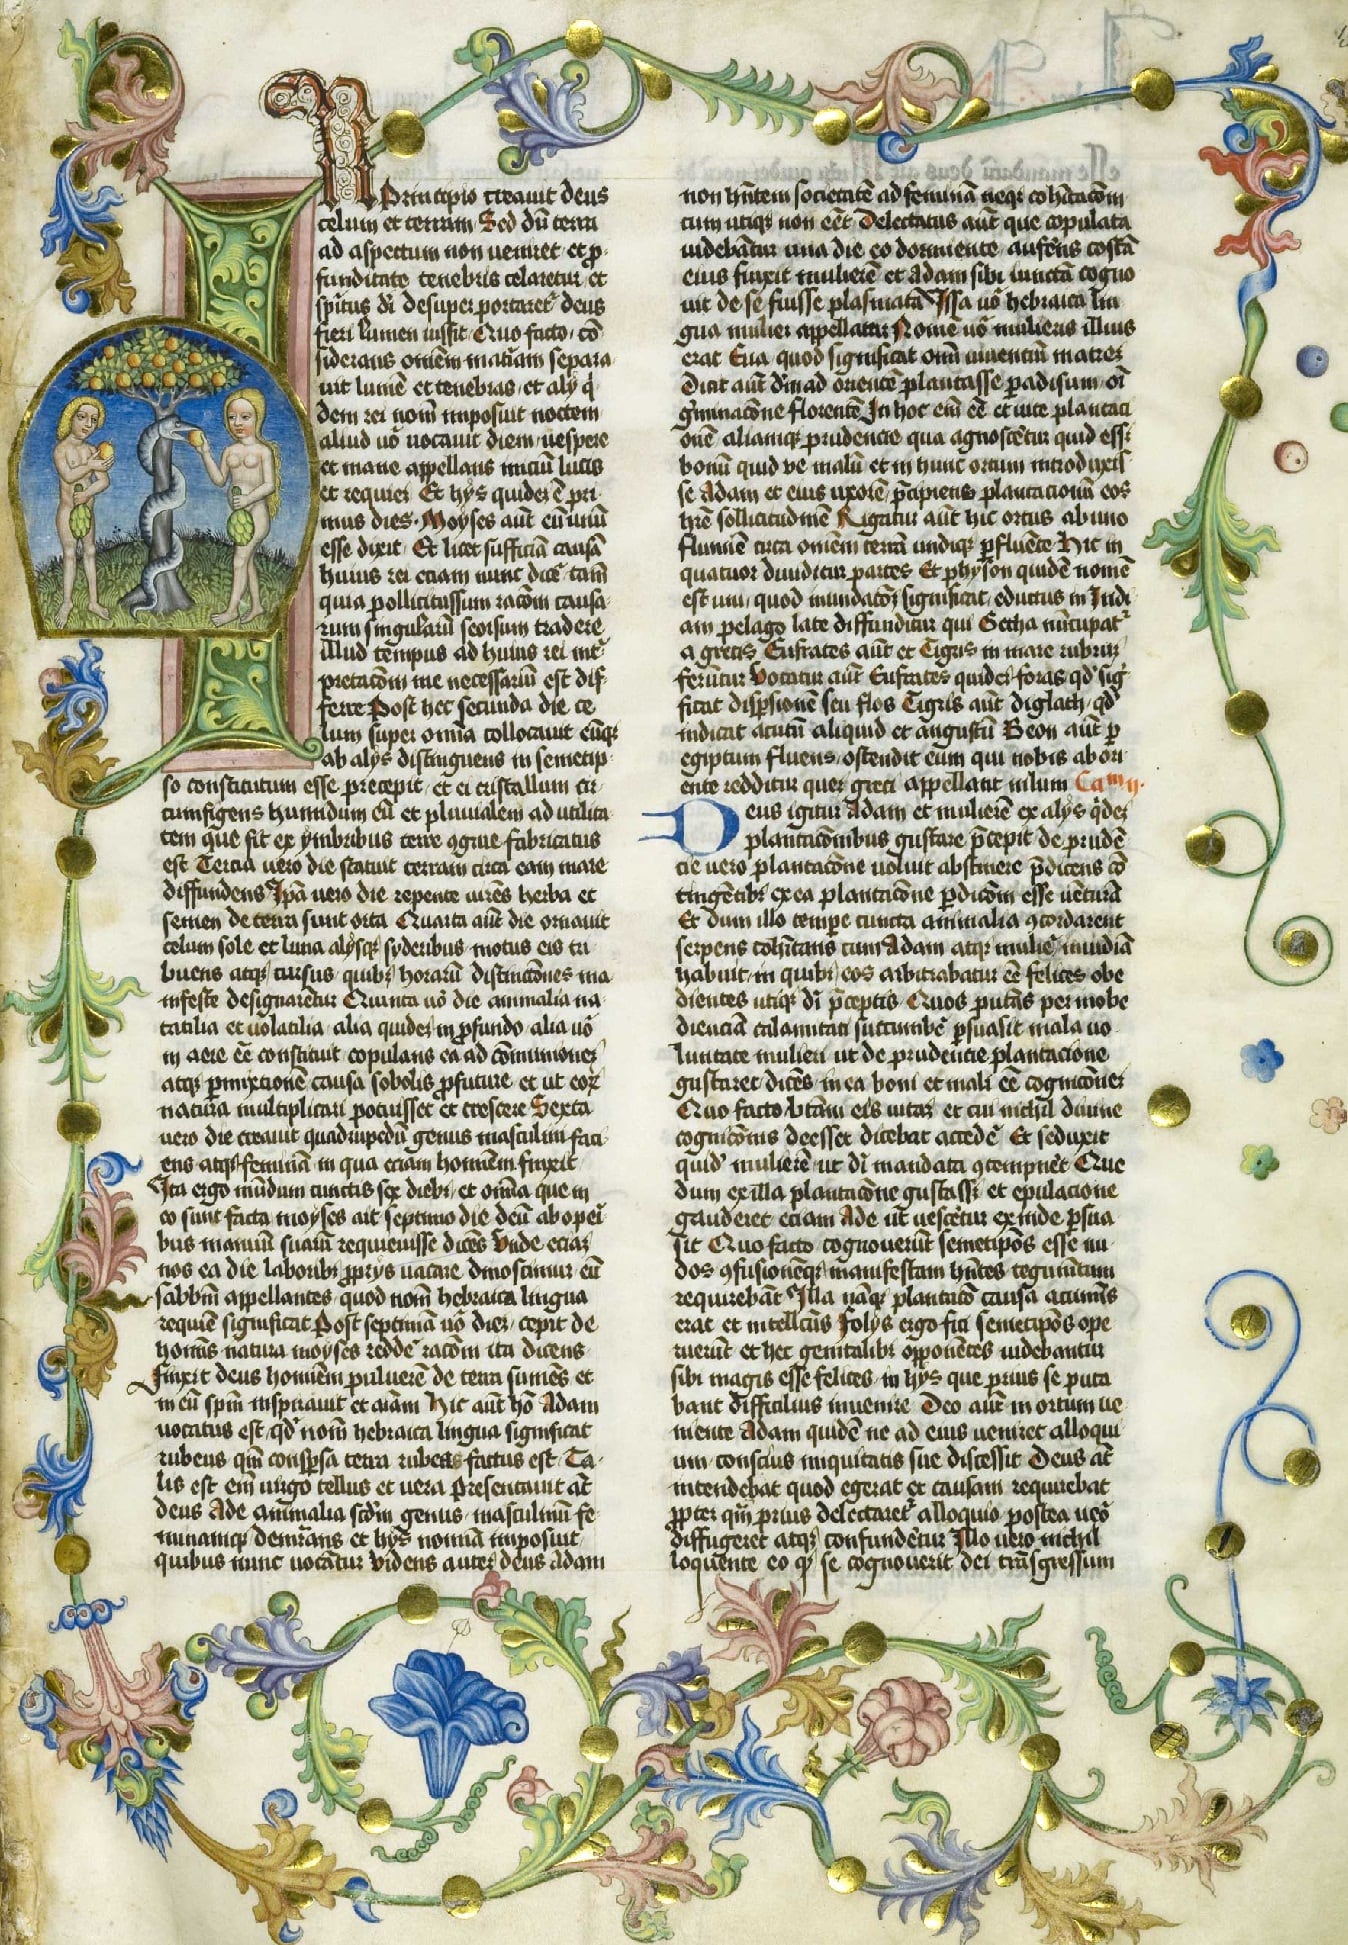 In Principio creauit deus
celum et terram Sed dū terra
ad aspectum non veniret et p̱-
funditate tenebris celaretur et
sp̄itus dī desuper portaretᵘʳ deus
fieri lumen iussit Quo facto cō
siderans omēm mat̄iam separa
uit lumē et tenebras et aly q̇
dem rei nom̄ imposuit noctem
aliud ūo uocauit diem uespere
et mane appellans iniciū lucis
et requiei Et hys quidez ē pri
mus dies Moyses aūt eū unū
esse dixit Et licet sufficiā causā
huius rei eciam nunc dicē tam̄
quia pollicitussum racōm causa
rum singularū seorsum tradere
illud tempus ad huius rei int̄
pretacōm me necessariū est dif
ferre Post hec secunda die ce
lum super omīa collocauit eūqꝫ
ab alys distinguens in semetip
so constitutum esse precepit et ei cristallum cir
cumfigens humidum eū et pluuialem ad utilita
tem que fit ex ymbribus terre ꝯgrue fabricatus
est Tercia uero die statuit terram circa eam mare
diffundens Ip̄a uero die repente uirēs herba et
semen de terra sunt orta Quarta aūt die ornauit
celum sole et luna alysqꝫ syderibus motus eis tri
buens atqꝫ cursus quibꝫ horarū distinctiōnes ma
nifeste designarētur Quinta uō die animalia na
tatilia et uolatilia alia quidez in ꝓfundo alia uō
in aere ēē constituit copulans ea ad cōmunionez
atqꝫ ꝑmixtionē causa sobolis ꝓfuture et ut eoꝝ
natura multiplicari potuisset et crescere Sexta
uero die creauit quadrupedū genus masculim faci
ens atqꝫ feminā in qua eciam hominēm finxit
Ita ergo mūdum cunctis sex diebꝫ et omīa que in
eo sunt facta moyses ait septimo die deū ab operi
bus manuū suarū requieuisse dicēs Vnde eciaꝫ
nos ea die laboribꝫ ꝓprys uacare dinoscimur eū
sabbm̄ appellantes quod nom̄ hebraica lingua
requiē significat Post septimā uō diez cepit de
homīs natura moyses reddē racōm ita dicens
Finxit deus homiēm puluerē de terra sumēs et
in eū spm̄ inspirauit et aīam Hic aūt hō Adam
uocatus est qd̄ nom̄ hebraica lingua significat
rubeus qm̄ consꝑsa terra rubea factus est Ta
lis est em̄ uirgo tellus et uera Presentauit aūt
deus Ade animalia scdm̄ genus masculinū fe
mininamqꝫ demr̄ans et hys nomīa imposuit
quibus nunc uocātur Videns autez deus Adam
non hn̄tem societatē ad feminā neqꝫ cohītacōm
cum utiqꝫ non eēt Delectatus aūt que copulata
uidebātur una die eo dormiente aufer̄ens costā
eius finxit mulierē et Adam sibi iunctā cogno
uit de se fuisse plasmatā Issa uō hebraica lin
gua mulier appellatur Nomē uō mulieris illius
erat Eua quod significat om̄ uiuentiū matrez
Dicit aūt dm̄ ad orientē plantasse paradisum oī
gm̄inacōne florentē In hoc em̄ eē et uite plantaci
onē aliamqꝫ prudencie qua agnoscetur quid esset
bonū quid ve malū et in hunc ortum introduxis
se Adam et eius uxorē p̄cipiens plantacionū eos
hr̄e sollicitudinē Rigatur aūt hic ortus ab uno
flumiē circa omēm terrā undiqꝫ ꝑfluēte Hic in
quatuor diuiditur partes Et physon quidē nomē
est uni quod inundacōꝫ significat eductus in Indi
am pelago late diffunditur qui Getha nūcupatʳ
a grecis Eufrates aūt et Tigris in mare rubrum
ferūtur Vocatur aūt Eufrates quidez foras qd̄ sig
ficat disꝑsionē seu flos Tigris aūt diglath qd̄
indicat acutū aliquid et angustū Geon aūt ꝑ
egiptum fluens ostendit eum qui nobis ab ori
ente redditur quez greci appellant nilum Caᵐ ij
Deus igitur Adam et mulierē ex alys q̇dez
plantacōnibus gustare p̄cepit de prudē
cie uero plantacōne uoluit abstinere p̄dicens cō
tingētibꝫ ex ea plantacōne ꝑdicōm esse uenturā
Et dum illo tempe cuncta animalia ꝯcordarent
serpens cohītans cum Adam atqꝫ mulie inuidiā
habuit in quibꝫ eos arbitrabatur ēē felices obe
dientes utiqꝫ dī p̄ceptis Quos putās per inobe
dienciā calamitati succumbē ꝑsuasit mala uo
luntate mulieri ut de prudencie plantacione
gustaret dicēs in ea boni et mali ēē cognicōnez
Quo facto btām eis uitaꝫ et cui nichil diuine
cognicōnis deesset dicebat accedē Et seduxit
quidē mulierē ut dī mandata ꝯtempneret Que
dum ex illa plantacōne gustasset et epulacione
gauderet eciam Ade ut uescetur exinde ꝑsua
sit Quo facto cognouerūt semetipōs esse nu
dos ꝯfusionēqꝫ manifestam hn̄tes tegumētum
requirebāt Illa nāqꝫ plantacō causa acuminis
erat et intellectus Folys ergo fici semetipōs ope
ruerūt et hec genitalibꝫ opponētes uidebantur
sibi magis esse felices in hys que prius se puta
bant difficilius inuenire Deo aūt in ortum ue
niente Adam quidē ne ad eius ueniret alloqui
um conscius iniquitatis sue discessit Deus aūt
intendebat quod egerat et causam requirebat
ꝓpter qm̄ prius delectaretᵘʳ alloquio postea uero
diffugeret atqꝫ confunderetur Illo uero nichil
loquente eo qꝫ se cognouerit dei trāsgressum